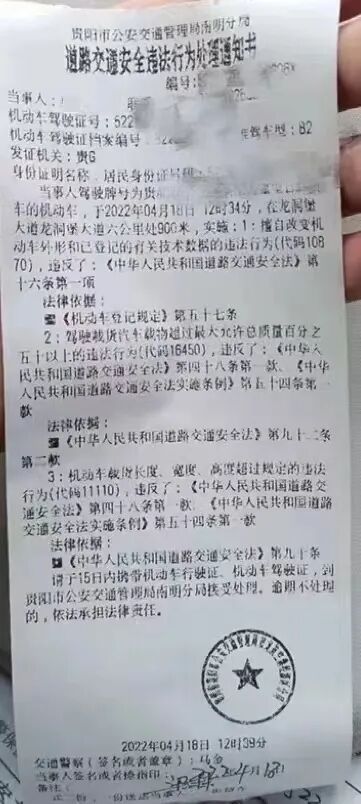 贵阳市公安交通管理局南明分局
道路交通安全违法行为处理通知书
编号:
当事人:
机动车驾驶证号: 522
机动车驾驶证档案编号: 522 准驾车型: B2
发证机关: 贵G
身份证明名称、居民身份证号码
当事人驾驶牌号为贵
车的机动车，于2022年04月18日 12时34分，在龙洞堡
大道龙洞堡大道六公里处900米，实施: 1: 擅自改变机
动车外形和已登记的有关技术数据的违法行为(代码1087
0)，违反了:《中华人民共和国道路交通安全法》第
十六条第一项
法律依据:
《机动车登记规定》第五十七条
2: 驾驶载货汽车载物超过最大允许总质量百分之
五十以上的违法行为(代码16450)，违反了:《中华人
民共和国道路交通安全法》第四十八条第一款、《中华人
民共和国道路交通安全法实施条例》第五十四条第一
款
法律依据:
《中华人民共和国道路交通安全法》第九十二条
第二款
3: 机动车载物长度、宽度、高度超过规定的违法
行为(代码11110)，违反了:《中华人民共和国道路交
通安全法》第四十八条第一款、《中华人民共和国道路
交通安全法实施条例》第五十四条第一款
法律依据:
《中华人民共和国道路交通安全法》第九十条
请于15日内携带机动车行驶证、机动车驾驶证，到
贵阳市公安交通管理局南明分局接受处理。逾期不处理
的，依法承担法律责任。
2022年04月18日 12时39分
交通警察 (签名或者盖章):
当事人签名或者捺指印: 2022年4月18日
备注: